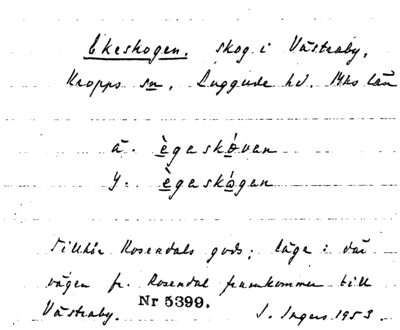 Ekeskogen, skog i Västraby,
Kropps sn, Luggude hd. Mhs län
ä. ègaskóvan
y. ègaskógan
Tillhör Rosendals gods; läge: där
vägen fr. Rosendal framkommer till
Västraby. Nr 5399. I. Ingers 1953.